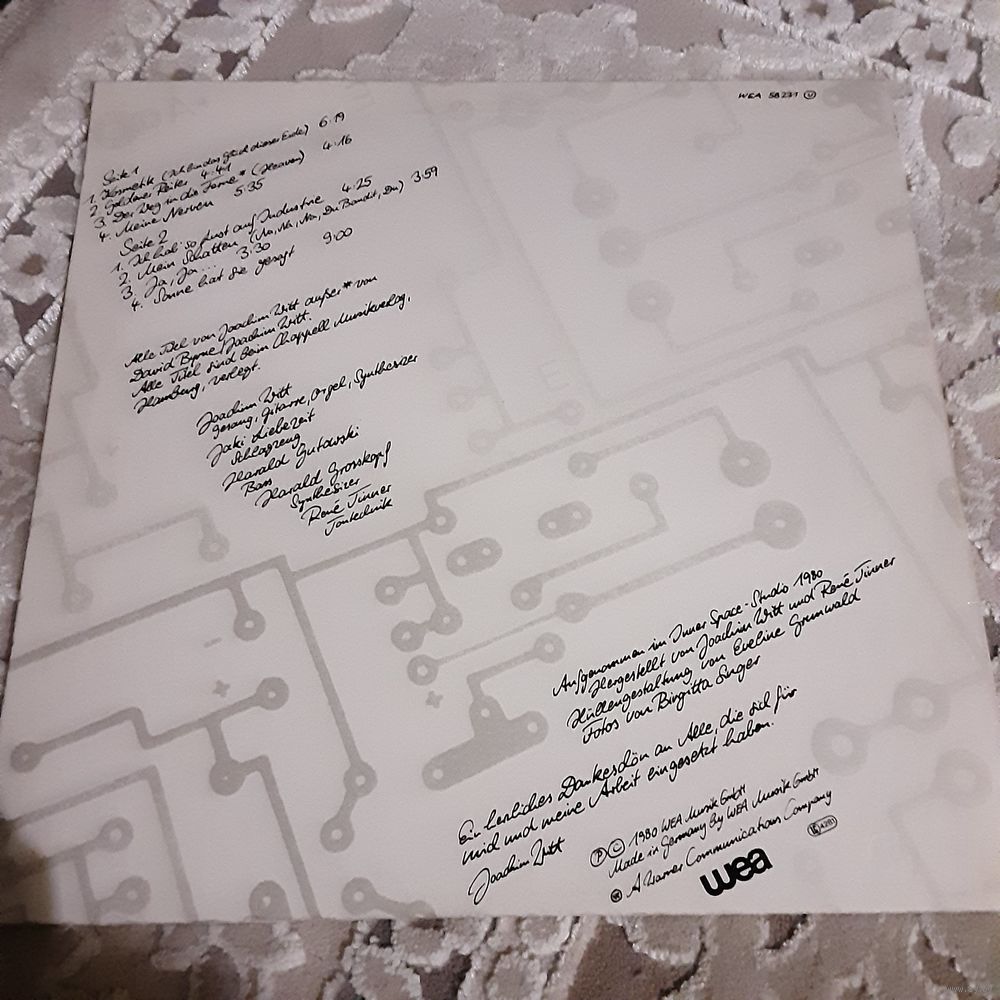 WEA 58 231 U
Seite 1
1. Kosmetik (Ich bin das Glück dieser Erde) 6:19
2. Goldener Reiter 4:41
3. Der Weg in die Ferne * (Heaven) 4:16
4. Meine Nerven 5:35
Seite 2
1. Ich hab' so Lust auf Industrie 4:25
2. Mein Schatten (Na, Na, Na, Du Bandit, Du) 3:59
3. Ja, Ja... 3:30
4. Sonne hat sie gesagt 9:00
Alle Titel von Joachim Witt außer * von
David Byrne/Joachim Witt.
Alle Titel sind beim Chappell Musikverlag,
Hamburg, verlegt.
Joachim Witt
Gesang, Gitarre, Orgel, Synthesizer
Jaki Liebezeit
Schlagzeug
Harald Gutowski
Bass
Harald Grosskopf
Synthesizer
René Tinner
Tontechnik
Aufgenommen im Inner Space-Studio 1980
Hergestellt von Joachim Witt und René Tinner
Hüllengestaltung von Eveline Grunwald
Fotos von Birgitta Singer
Ein herzliches Dankesdön an Alle, die sich für
mich und meine Arbeit eingesetzt haben.
Joachim Witt
Ⓟ Ⓒ 1980 WEA Musik GmbH
Made in Germany by WEA Musik GmbH
A Warner Communications Company
wea